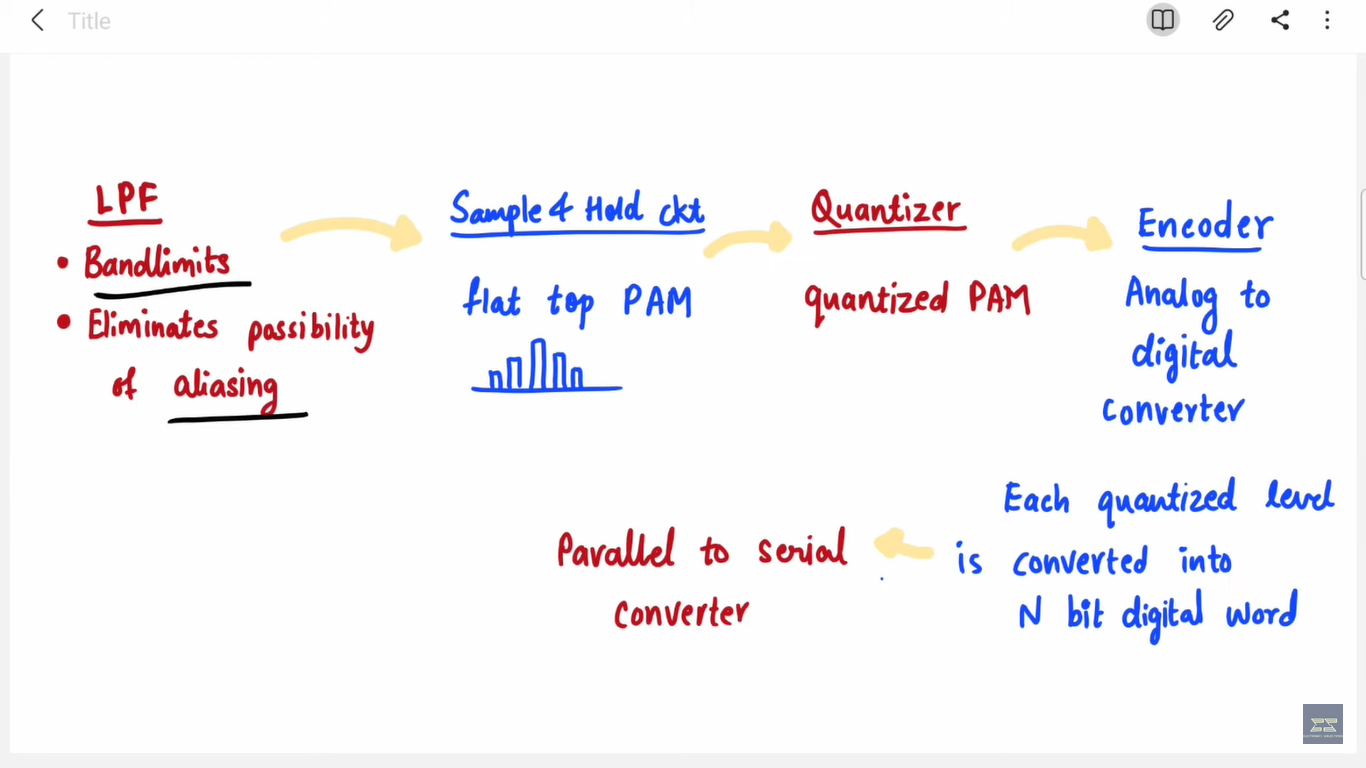 Title
LPF
• Bandlimits
• Eliminates possibility
of aliasing
Sample & Hold ckt
flat top PAM
Quantizer
quantized PAM
Encoder
Analog to
digital
converter
Each quantized level
is converted into
N bit digital word
Parallel to serial
converter